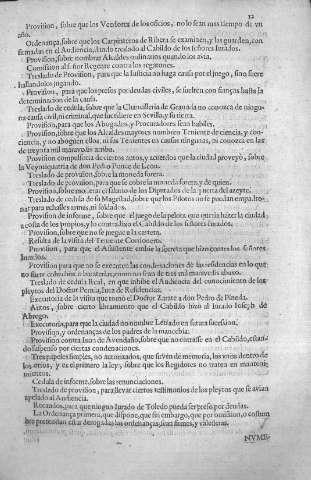 12
Provision, sobre que los Veedores de los oficios, no lo sean mas tiempo de vn
año.
Ordenança, sobre que los Carpinteros de Ribera se examinen, y las guarden, con
firmadas en el Audiencia, dando traslado al Cabildo de los señores Iurados.
Provision, sobre nombrar Alcaldes ordinarios quando los avia.
Comission al señor Regente contra los regatones.
Traslado de Provision, para que la Iusticia no haga causa por el juego, sino fuere
hallandolos jugando.
Provision, para que los presos por deudas civiles, se suelten con fianças hasta la
determinacion de la causa.
Traslado de cedula, sobre que la Chancilleria de Granada no conozca de ningu-
na causa civil, ni criminal, que sucediere en Sevilla, y su tierra.
Provision, para que los Abogados, y Procuradores sean habiles.
Provision, sobre que los Alcaldes mayores nombren Teniente de ciencia, y con-
ciencia, y no aboguen ellos, ni sus Tenientes en causas ningunas, ni conozca en las
de treynta mil maravedis arriba.
Provision compulsoria de ciertos autos, y acuerdos que la ciudad proveyò, sobre
la Veyntiquatria de don Pedro Ponce de Leon.
Traslado de provision, sobre la moneda forera.
Traslado de provision, para que se cobre la moneda forera, y de quien.
Provision, sobre moderar el salario de los Diputados de la puerta del azeyte.
Traslado de cedula de su Magestad, sobre que los Pilotos no se puedan empadro-
nar para nobles, ni soldados.
Provision de informe, sobre que el juego de la pelota que queria hazer la ciudad
a costa de los propios, y lo contradixo el Cabildo de los señores Iurados.
Provision, sobre que no se pregue a la carcera.
Resulta de la visita del Teniente Corionero.
Provision, para que el Assistente embie la secreta que hizo contra los señores
Iurados.
Provision para que no se executen las condenaciones de las residencias en lo que
no fuere cohechos, o baraterias, como no sean de tres mil maravedis abaxo.
Traslado de cedula Real, en que inhibe el Audiencia del conocimiento de los
pleytos del Doctor Pernia, Iuez de Residencias.
Executoria de la visita que tomò el Doctor Zarate a don Pedro de Pineda.
Autos, sobre cierto libramiento que el Cabildo hizo al Iurado Ioseph de
Abrego.
Executoria, para que la ciudad no nombre Letrado en futura sucession.
Provision, y ordenanças de los padres de la mancebia.
Provision contra Iuan de Avendaño, sobre que no entrasse en el Cabildo, estan-
do suspenso por ciertas condenaciones.
Tres papeles simples, no autorizados, que sirven de memoria, los vnos dentro de
los otros, y es el primero la ley, sobre que los Regidores no traten en manteni-
mientos.
Cedula de informe, sobre las renunciaciones.
Traslado de provision, para llevar ciertos testimonios de los pleytos que se avian
apelado al Audiencia.
Recaudos, para que ningun Iurado de Toledo pueda ser preso por deudas.
La Ordenança primera, que dispone, que sin embargo, que por omission, o costum
bre pretendan estar derogadas las ordenanças, sean firmes, y valederas.
NVME-